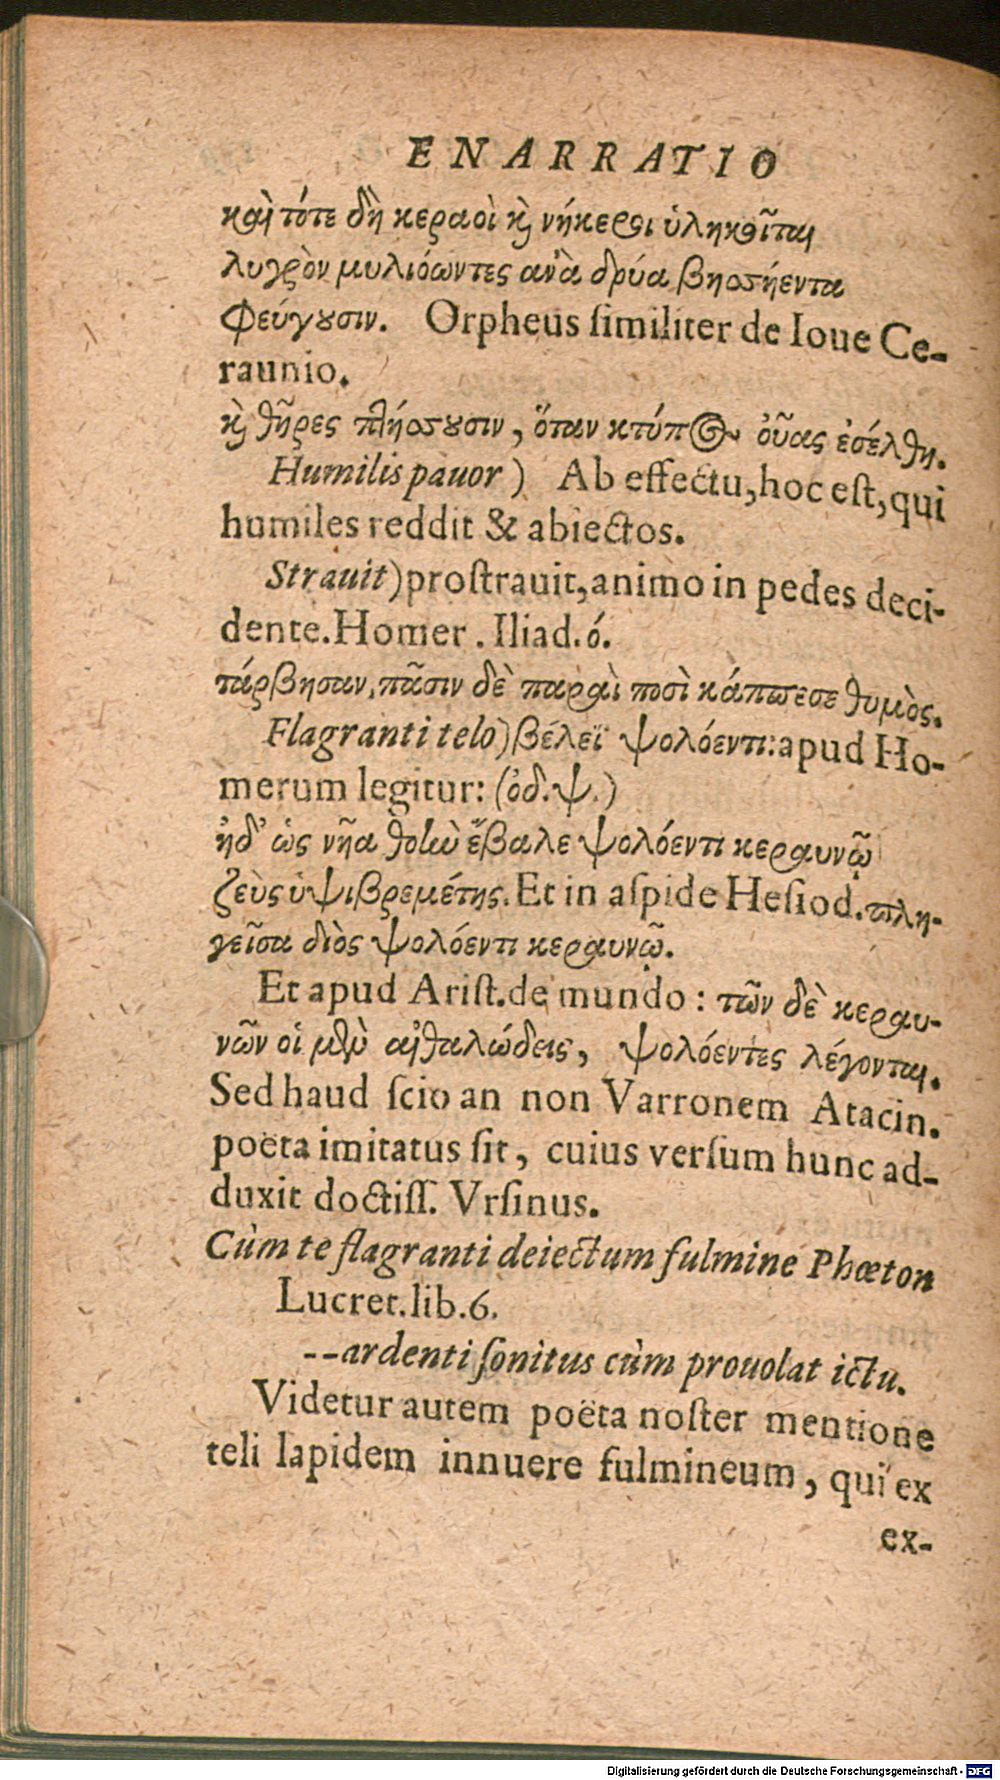 ENARRATIO
καὶ τότε δὴ κεραοὶ κ̀ νήκεροι ὑληκοῖται
λυγρὸν μυλιόωντες ἀνὰ δρύα βησσήεντα
φεύγουσιν. Orpheus ſimiliter de Ioue Ce-
raunio.
κ̀ θῆρες πτήσσουσιν, ὅταν κτύπος οὔας ἐσέλθη.
Humilis pauor) Ab effectu, hoc eſt, qui
humiles reddit & abiectos.
Strauit) proſtrauit, animo in pedes deci-
dente. Homer. Iliad. ό.
τάρβησαν, πᾶσιν δὲ παραὶ ποσὶ κάππεσε θυμὸς.
Flagranti telo) βέλεϊ ψολόεντι: apud Ho-
merum legitur: (ὀδ. ψ.)
ἠδ' ὡς νῆα θοὴν ἔβαλε ψολόεντι κεραυνῷ
ζεὺς ὑψιβρεμέτης. Et in aſpide Heſiod. πλη-
γεῖσα διὸς ψολόεντι κεραυνῷ.
Et apud Ariſt. de mundo: τῶν δὲ κεραυ-
νῶν οἱ μὲν αἰθαλώδεις, ψολόεντες λέγονται.
Sed haud ſcio an non Varronem Atacin.
poëta imitatus ſit, cuius verſum hunc ad-
duxit doctiſſ. Vrſinus.
Cùm te flagranti deiectum fulmine Phœton
Lucret. lib. 6.
--ardenti ſonitus cùm prouolat ictu.
Videtur autem poëta noſter mentione
teli lapidem innuere fulmineum, qui ex
ex-
Digitalisierung gefördert durch die Deutsche Forschungsgemeinschaft - DFG